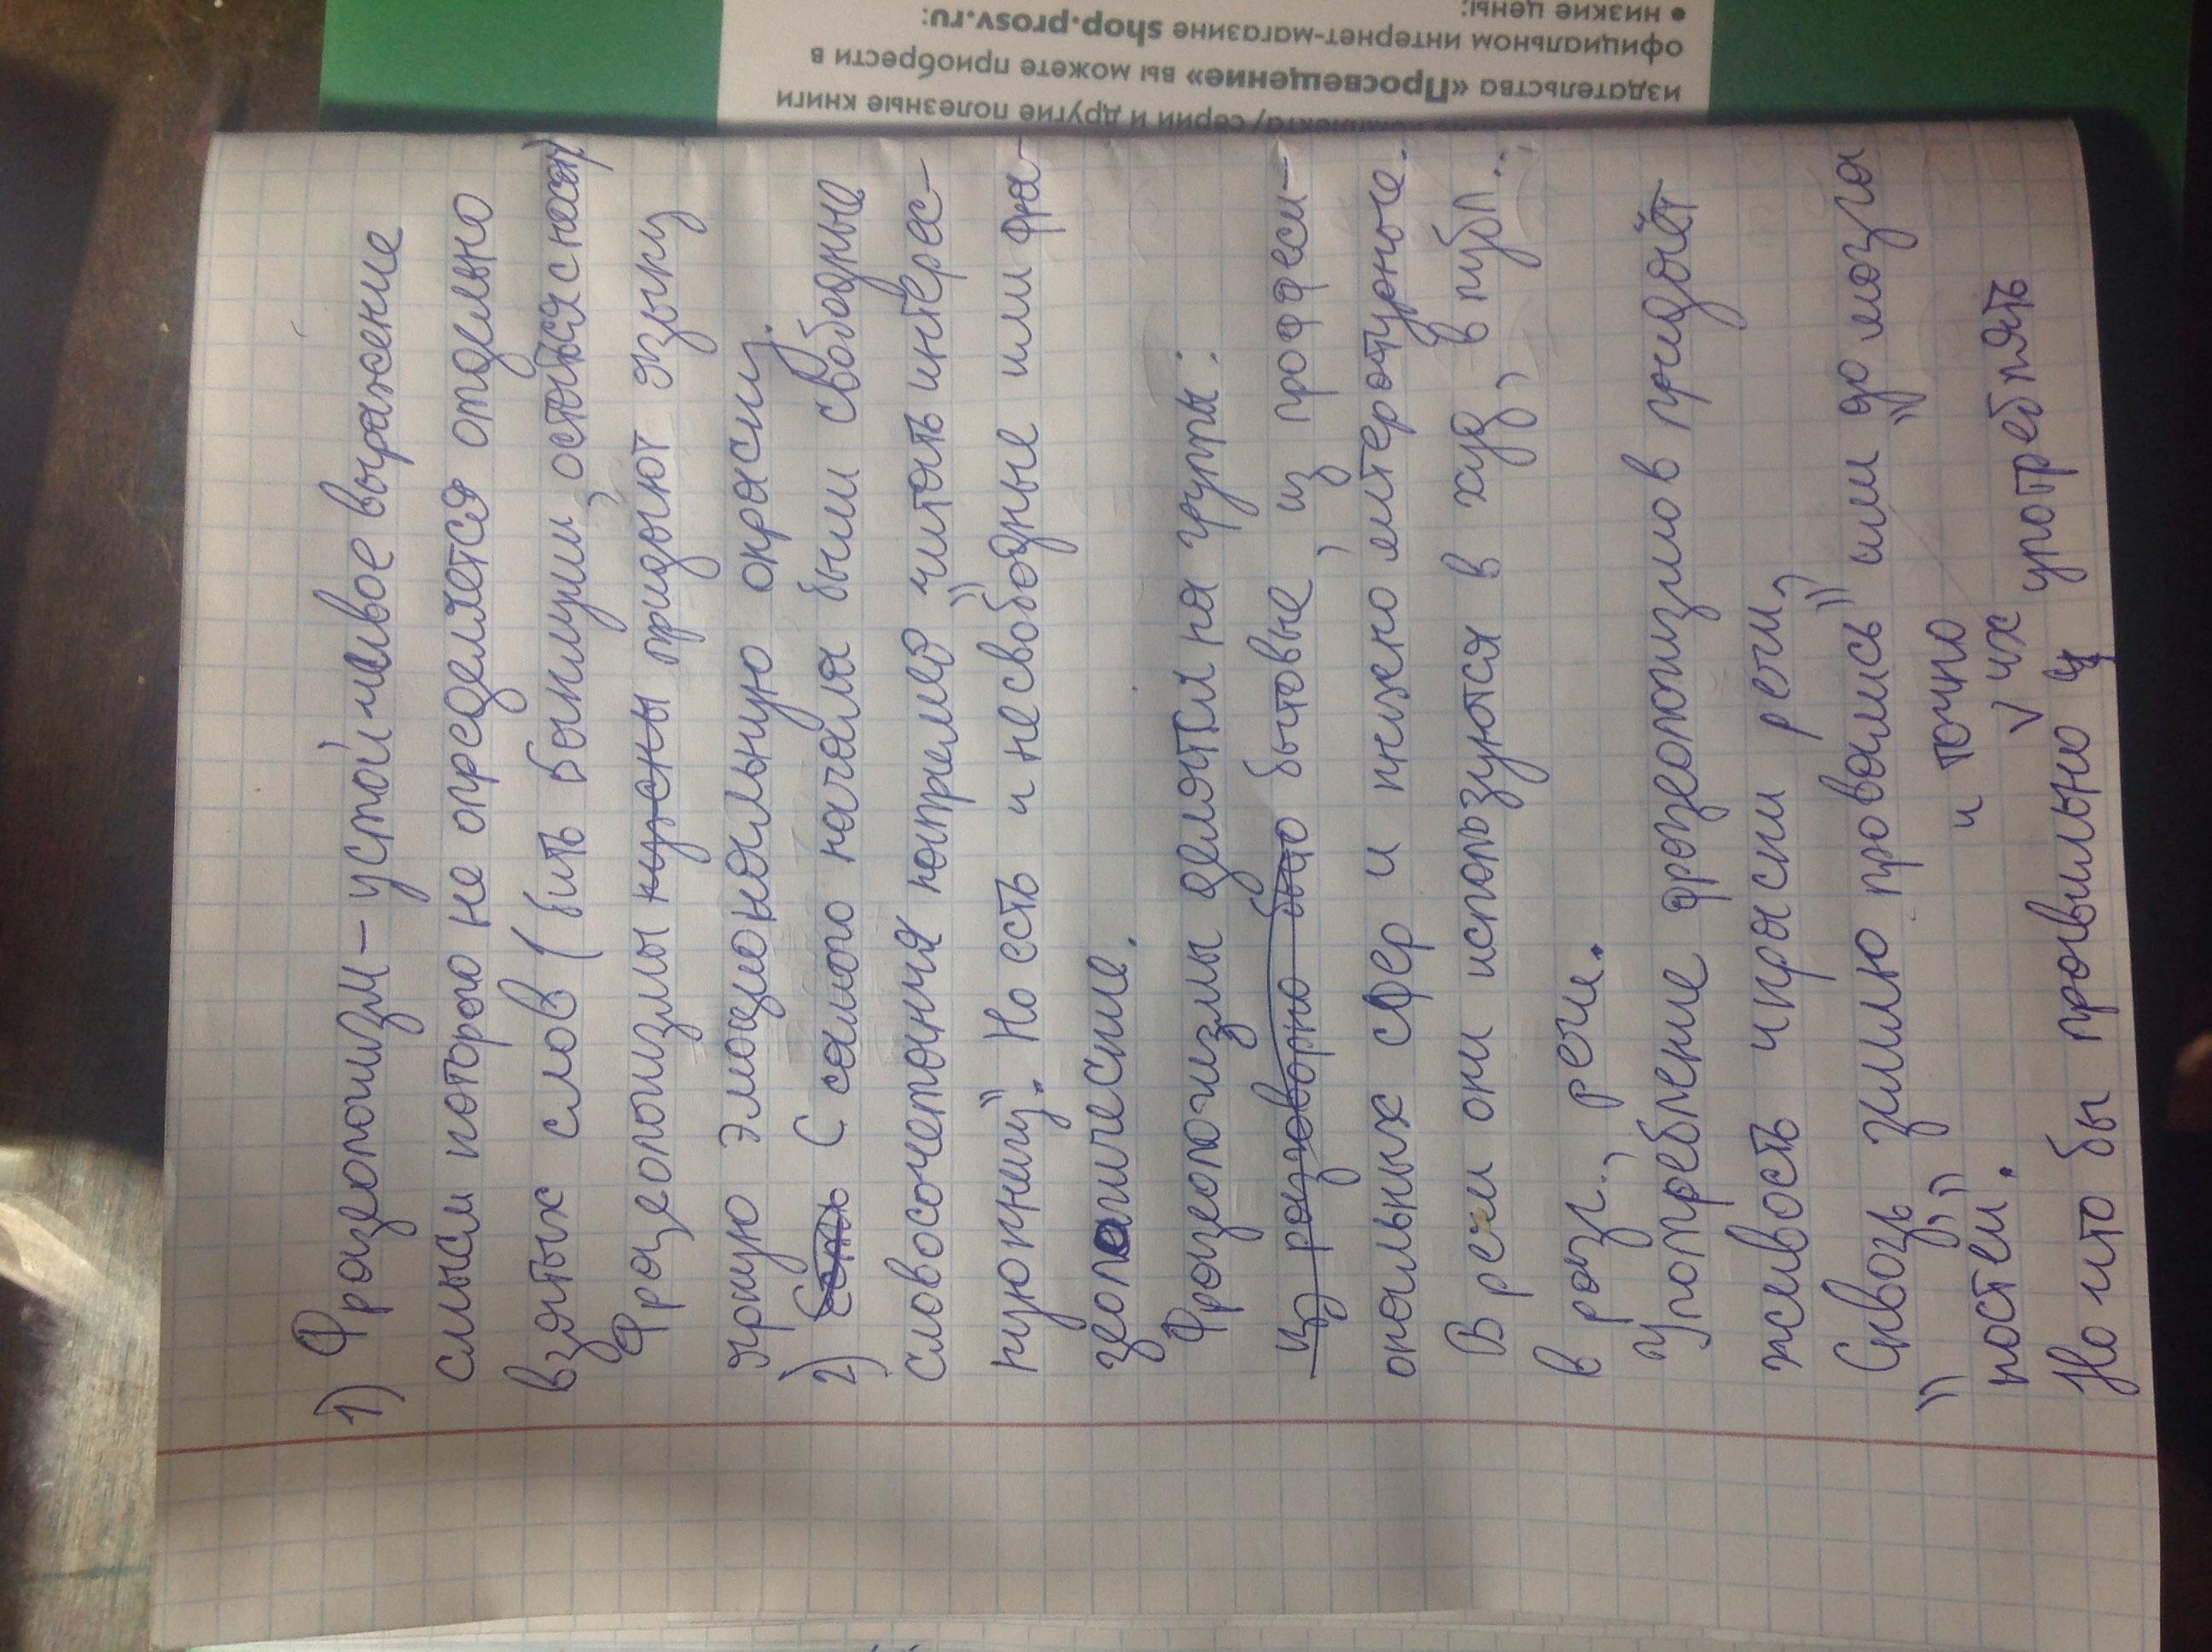 1) Фразеологизм – устойчивое выражение
смысл которого не определяется отдельно
взятых слов (бить баклуши, остаться с носом)
Фразеологизмы нужны придают языку
яркую эмоциональную окраску.
2) Есть С самого начала были свободные
словосочетания например "читать интерес-
ную книгу". Но есть и несвободные или фра-
зеологические.
Фразеологизмы делятся на группы:
из разговорно быто бытовые, из професси-
ональных сфер и книжно литературные.
В речи они используются в худ, в публ...
в разг., речи.
Употребление фразеологизмов придаёт
живость и краски речи,
"Сквозь землю провались" или "до мозга
костей".
и точно
Но что бы правильно у их употреблять
издательства «Просвещение» вы можете приобрести в
официальном интернет-магазине shop.prosv.ru:
• низкие цены;
серии и другие полезные книги